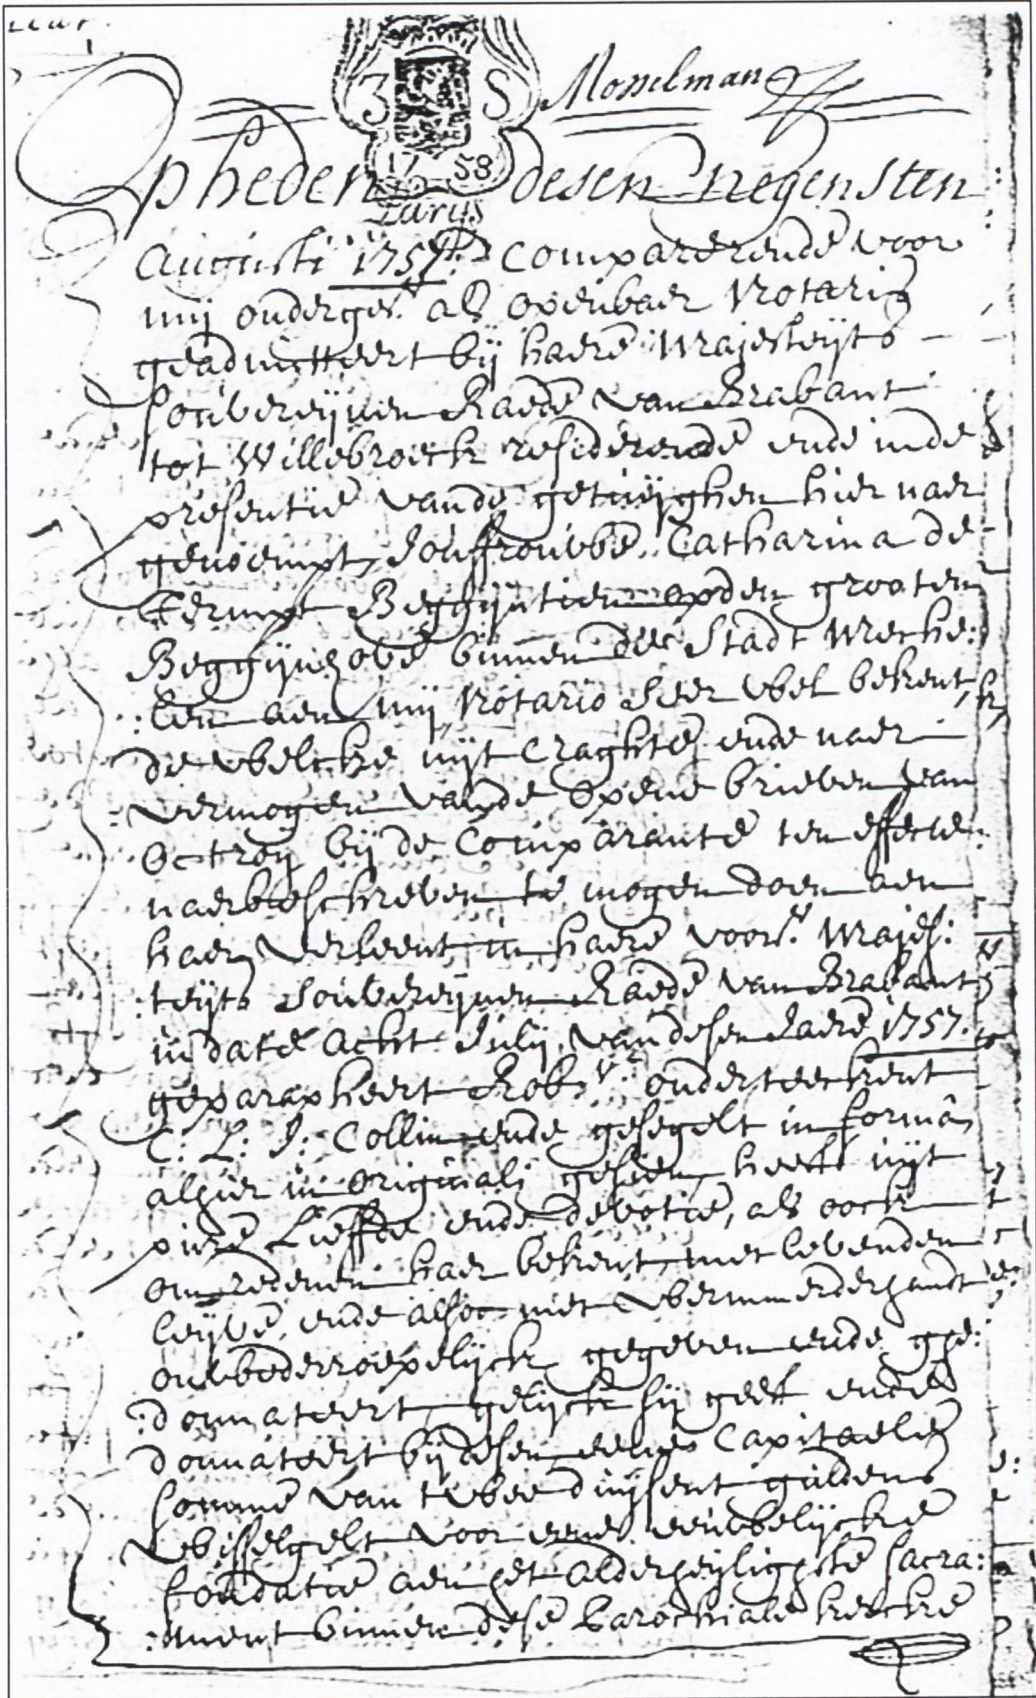 3 S Mosselman
17 58
Op heden desen negensten
Augusti 1757 Comparerende voor
mij onderges. als openbaer Notaris
geadmitteert bij haere Majesteijts
Souvereijnen Raede van Brabant
tot Willebroeck residerende ende inde
presentie vande getuijghen hier naer
genoempt, Jouffrouwe Catharina de
Beggijntien opden grooten
Beggijnhove binnen dee Stadt Meche:
:len aen mij Notario seer wel bekent,
de welcke uijt craghte ende naer
vermogen vande opene brieven van
Octroy bij de Comparante ten effecte
naerbeschreven te mogen doen aen
haer verleent in haere voors. Majes:
:teijts Souvereijnen Raede van Brabant
in date acht Julij van desen Jaere 1757.
geparapheert Rob. vt. onderteeckent
C: L: J: Collin ende gesegelt in forma
alhier in originali gesien, heeft uijt
pure Lieffde ende devotie, als oock
om redenen haer bekent met levenden
leijve, ende alsoo met wermerderhandt
onwederroepelijck gegeven ende ge:
:donnateert, gelijck sij geeft ende
donnateert bij desen eene Capitaele
somme van twee duijsent guldens
wisselgelt voor eene eeuwelijcke
fondatie aen het alderheijlighste Sacra:
:ment binnen dese Parochiale kercke